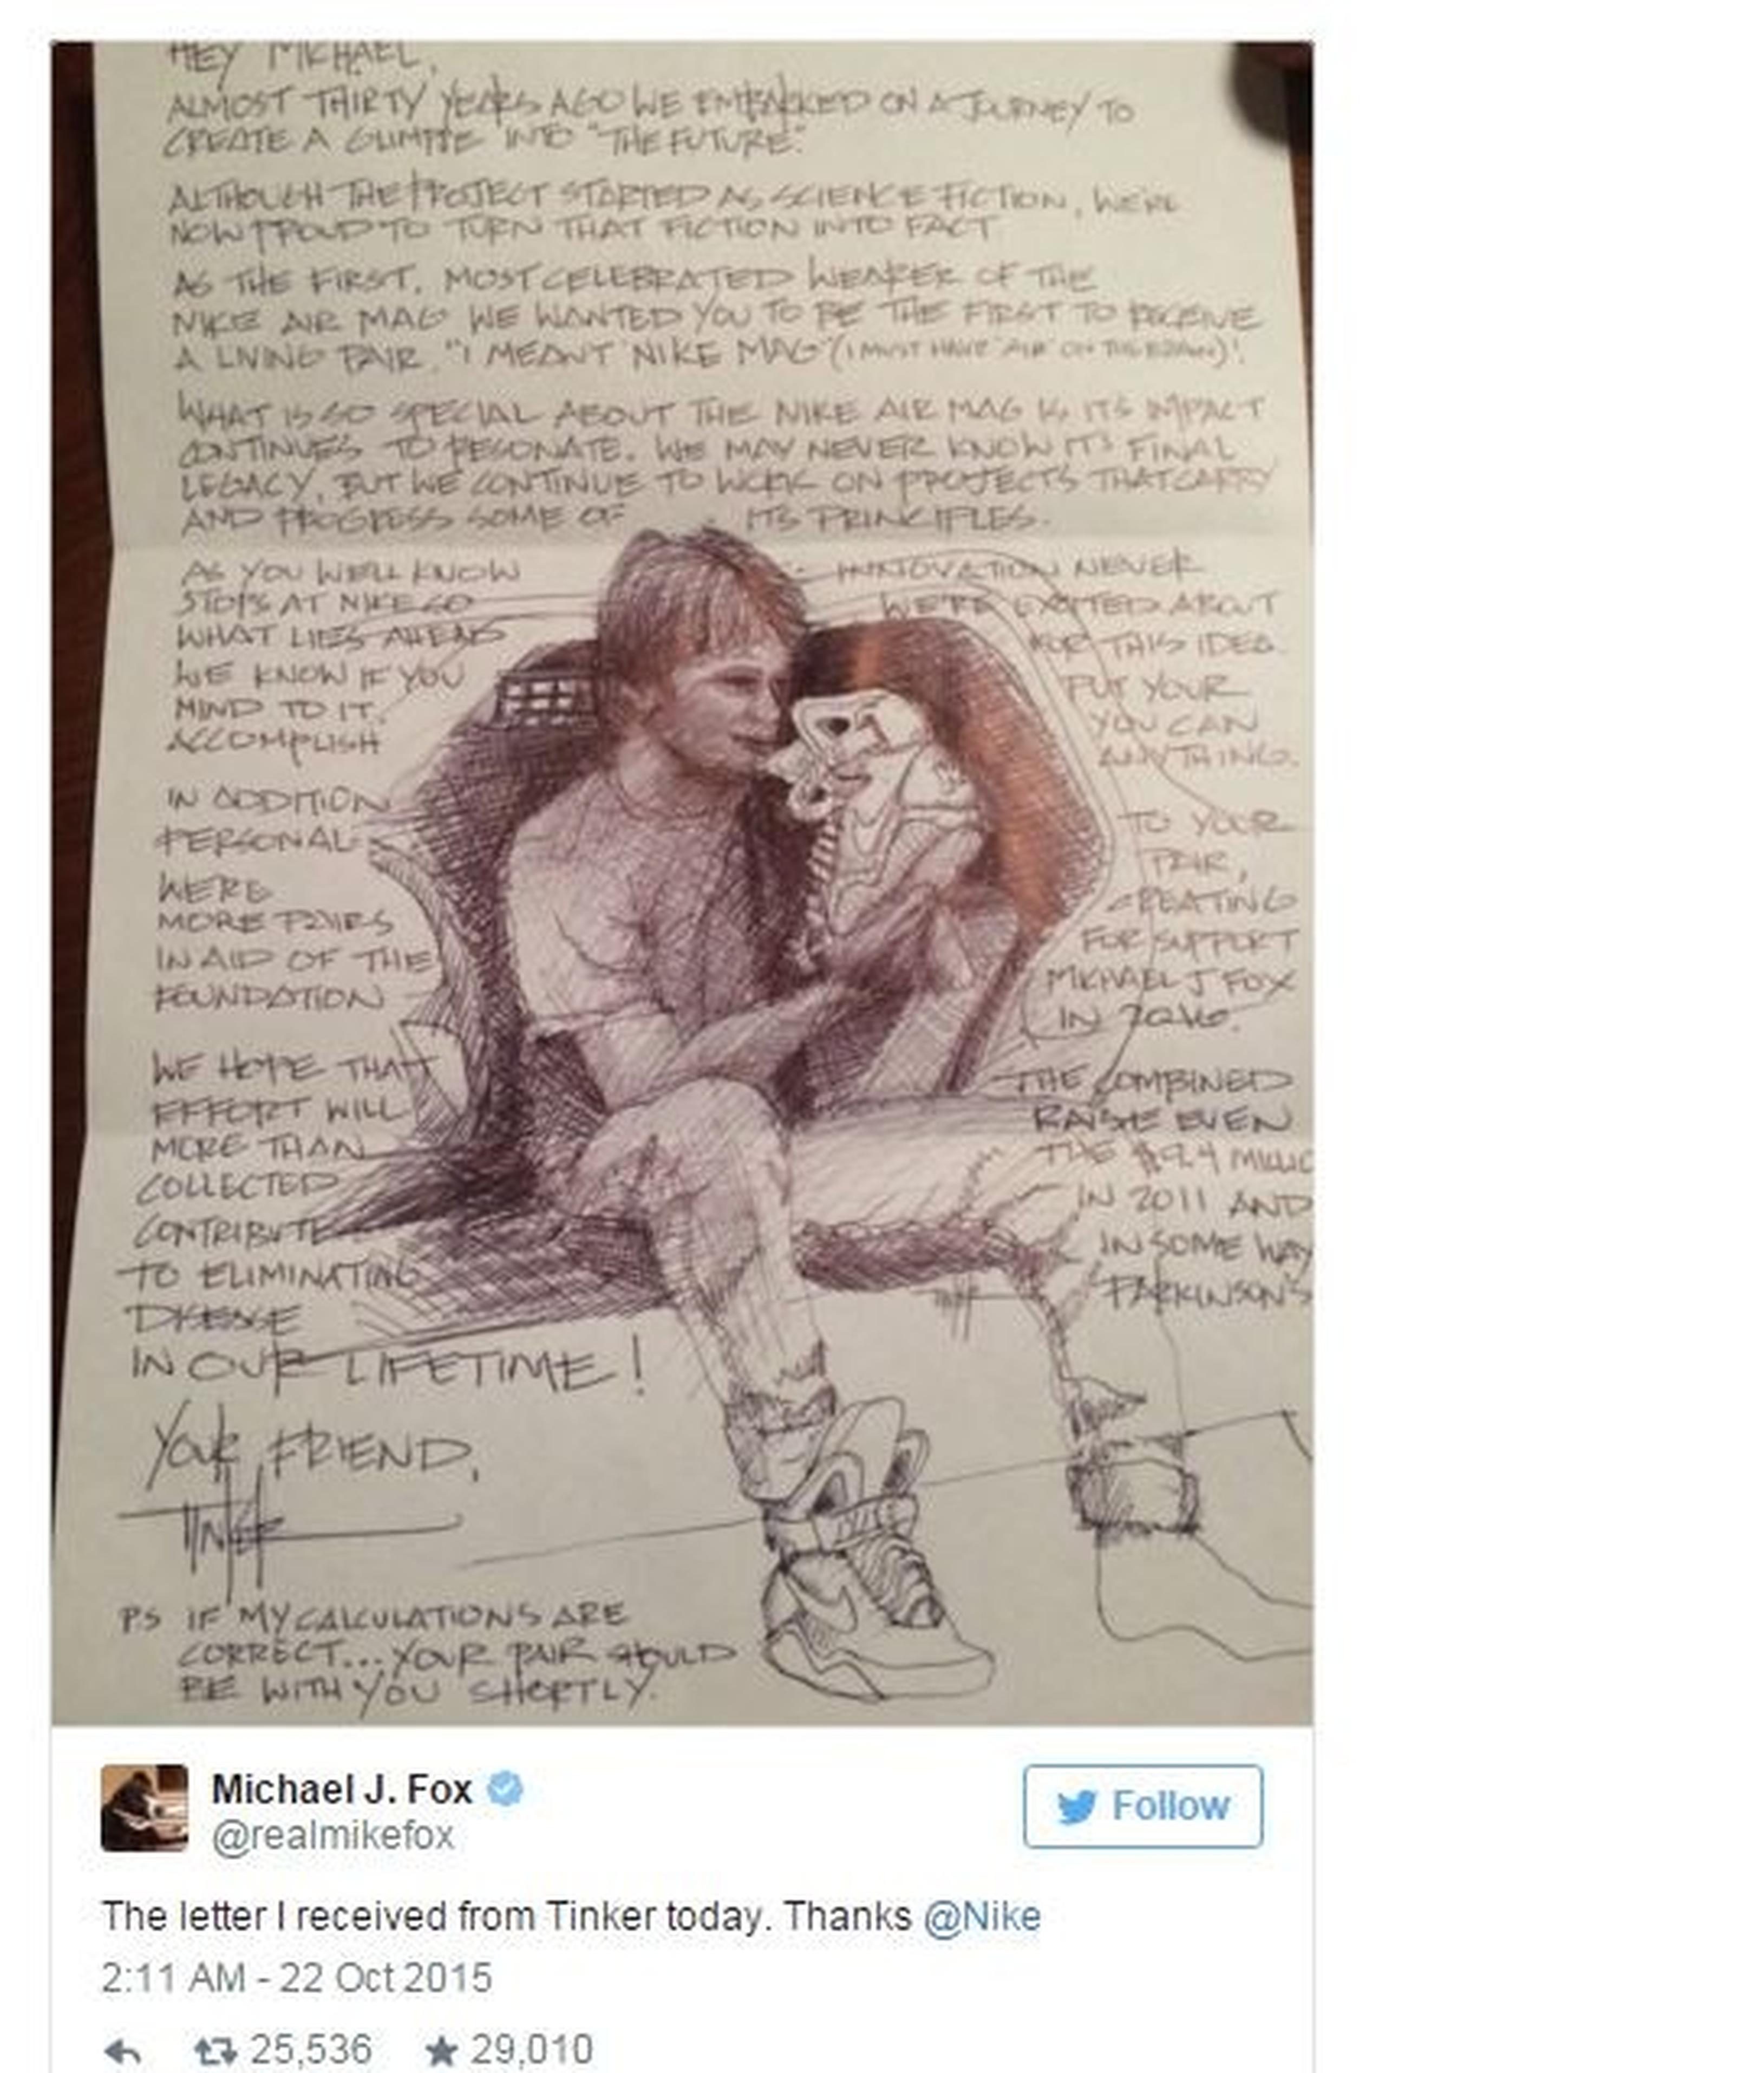 HEY MICHAEL,
ALMOST THIRTY YEARS AGO WE EMBARKED ON A JOURNEY TO
CREATE A GLIMPSE INTO "THE FUTURE."
ALTHOUGH THE PROJECT STARTED AS SCIENCE FICTION, WE'RE
NOW PROUD TO TURN THAT FICTION INTO FACT
AS THE FIRST, MOST CELEBRATED WEARER OF THE
NIKE AIR MAG WE WANTED YOU TO BE THE FIRST TO RECEIVE
A LIVING PAIR. "I MEANT NIKE MAG" (I MUST HAVE "AIR" ON THE BRAIN)!
WHAT IS SO SPECIAL ABOUT THE NIKE AIR MAG IS ITS IMPACT
CONTINUES TO RESONATE. WE MAY NEVER KNOW IT'S FINAL
LEGACY, BUT WE CONTINUE TO WORK ON PROJECTS THAT CARRY
AND PROGRESS SOME OF ITS PRINCIPLES.
AS YOU WELL KNOW INNOVATION NEVER
STOPS AT NIKE SO WE'RE EXCITED ABOUT
WHAT LIES AHEAD FOR THIS IDEA.
WE KNOW IF YOU PUT YOUR
MIND TO IT, YOU CAN
ACCOMPLISH ANYTHING.
IN ADDITION TO YOUR
PERSONAL PAIR,
WERE CREATING
MORE PAIRS FOR SUPPORT
IN AID OF THE MICHAEL J FOX
FOUNDATION IN 2016.
WE HOPE THAT THE COMBINED
EFFORT WILL RAISE EVEN
MORE THAN THE $9.4 MILLIO
COLLECTED IN 2011 AND
CONTRIBUTE IN SOME WAY
TO ELIMINATING PARKINSON'S
DISEASE
IN OUR LIFETIME!
YOUR FRIEND,
TINKER
PS IF MY CALCULATIONS ARE
CORRECT... YOUR PAIR SHOULD
BE WITH YOU SHORTLY.
Michael J. Fox
@realmikefox
Follow
The letter I received from Tinker today. Thanks @Nike
2:11 AM - 22 Oct 2015
25,536 29,010